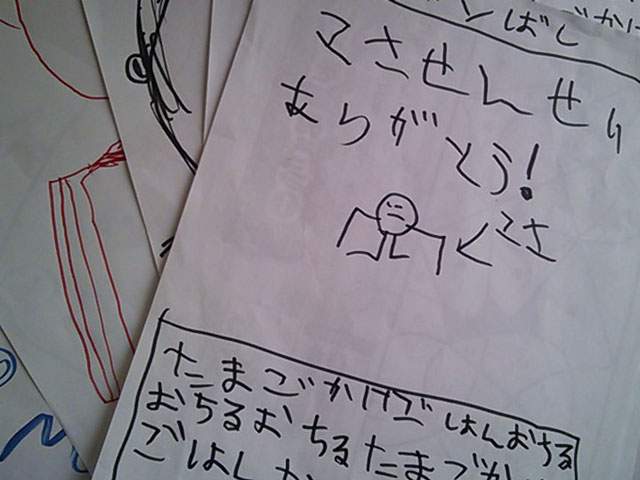 ンばし
マさせんせい
ありがとう！
マさ
たまごかけごはんおちる
おちるおちるたまごか
ごはん